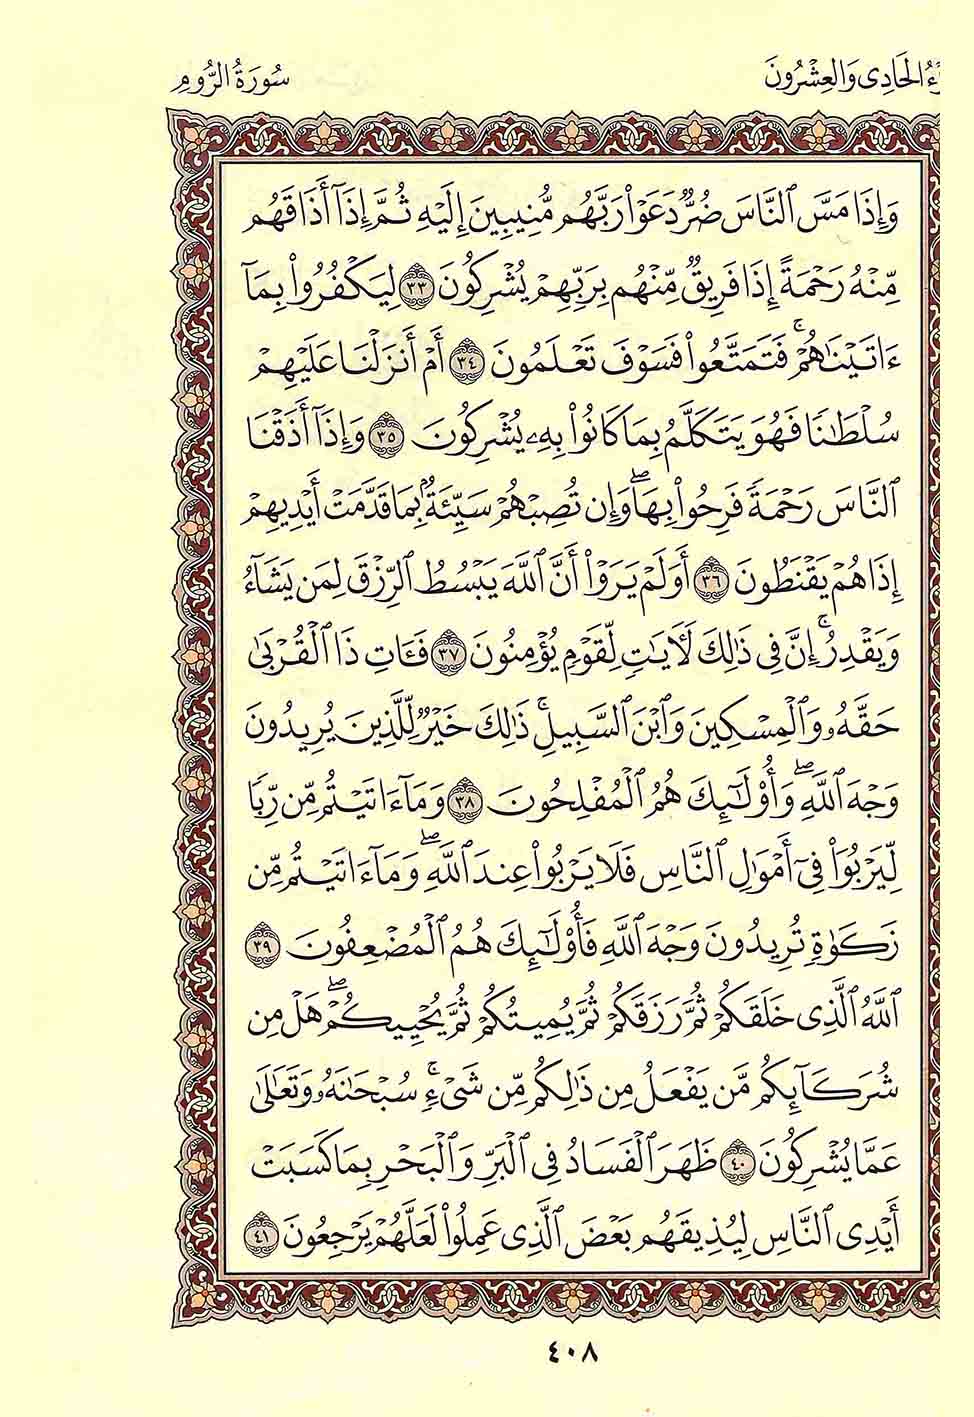 ـزْءُ الْحَادِي وَالْعِشْرُونَ
سُورَةُ الرُّومِ
وَإِذَا مَسَّ ٱلنَّاسَ ضُرٌّ دَعَوْا۟ رَبَّهُم مُّنِيبِينَ إِلَيْهِ ثُمَّ إِذَآ أَذَاقَهُم
مِّنْهُ رَحْمَةً إِذَا فَرِيقٌ مِّنْهُم بِرَبِّهِمْ يُشْرِكُونَ ٣٣ لِيَكْفُرُوا۟ بِمَآ
ءَاتَيْنَٰهُمْ ۚ فَتَمَتَّعُوا۟ فَسَوْفَ تَعْلَمُونَ ٣٤ أَمْ أَنزَلْنَا عَلَيْهِمْ
سُلْطَٰنًا فَهُوَ يَتَكَلَّمُ بِمَا كَانُوا۟ بِهِۦ يُشْرِكُونَ ٣٥ وَإِذَآ أَذَقْنَا
ٱلنَّاسَ رَحْمَةً فَرِحُوا۟ بِهَا ۖ وَإِن تُصِبْهُمْ سَيِّئَةٌۢ بِمَا قَدَّمَتْ أَيْدِيهِمْ
إِذَا هُمْ يَقْنَطُونَ ٣٦ أَوَلَمْ يَرَوْا۟ أَنَّ ٱللَّهَ يَبْسُطُ ٱلرِّزْقَ لِمَن يَشَآءُ
وَيَقْدِرُ ۚ إِنَّ فِى ذَٰلِكَ لَـَٔايَٰتٍ لِّقَوْمٍ يُؤْمِنُونَ ٣٧ فَـَٔاتِ ذَا ٱلْقُرْبَىٰ
حَقَّهُۥ وَٱلْمِسْكِينَ وَٱبْنَ ٱلسَّبِيلِ ۚ ذَٰلِكَ خَيْرٌ لِّلَّذِينَ يُرِيدُونَ
وَجْهَ ٱللَّهِ ۖ وَأُو۟لَٰٓئِكَ هُمُ ٱلْمُفْلِحُونَ ٣٨ وَمَآ ءَاتَيْتُم مِّن رِّبًا
لِّيَرْبُوَا۟ فِىٓ أَمْوَٰلِ ٱلنَّاسِ فَلَا يَرْبُوا۟ عِندَ ٱللَّهِ ۖ وَمَآ ءَاتَيْتُم مِّن
زَكَوٰةٍ تُرِيدُونَ وَجْهَ ٱللَّهِ فَأُو۟لَٰٓئِكَ هُمُ ٱلْمُضْعِفُونَ ٣٩
ٱللَّهُ ٱلَّذِى خَلَقَكُمْ ثُمَّ رَزَقَكُمْ ثُمَّ يُمِيتُكُمْ ثُمَّ يُحْيِيكُمْ ۖ هَلْ مِن
شُرَكَآئِكُم مَّن يَفْعَلُ مِن ذَٰلِكُم مِّن شَىْءٍ ۚ سُبْحَٰنَهُۥ وَتَعَٰلَىٰ
عَمَّا يُشْرِكُونَ ٤٠ ظَهَرَ ٱلْفَسَادُ فِى ٱلْبَرِّ وَٱلْبَحْرِ بِمَا كَسَبَتْ
أَيْدِى ٱلنَّاسِ لِيُذِيقَهُم بَعْضَ ٱلَّذِى عَمِلُوا۟ لَعَلَّهُمْ يَرْجِعُونَ ٤١
٤٠٨